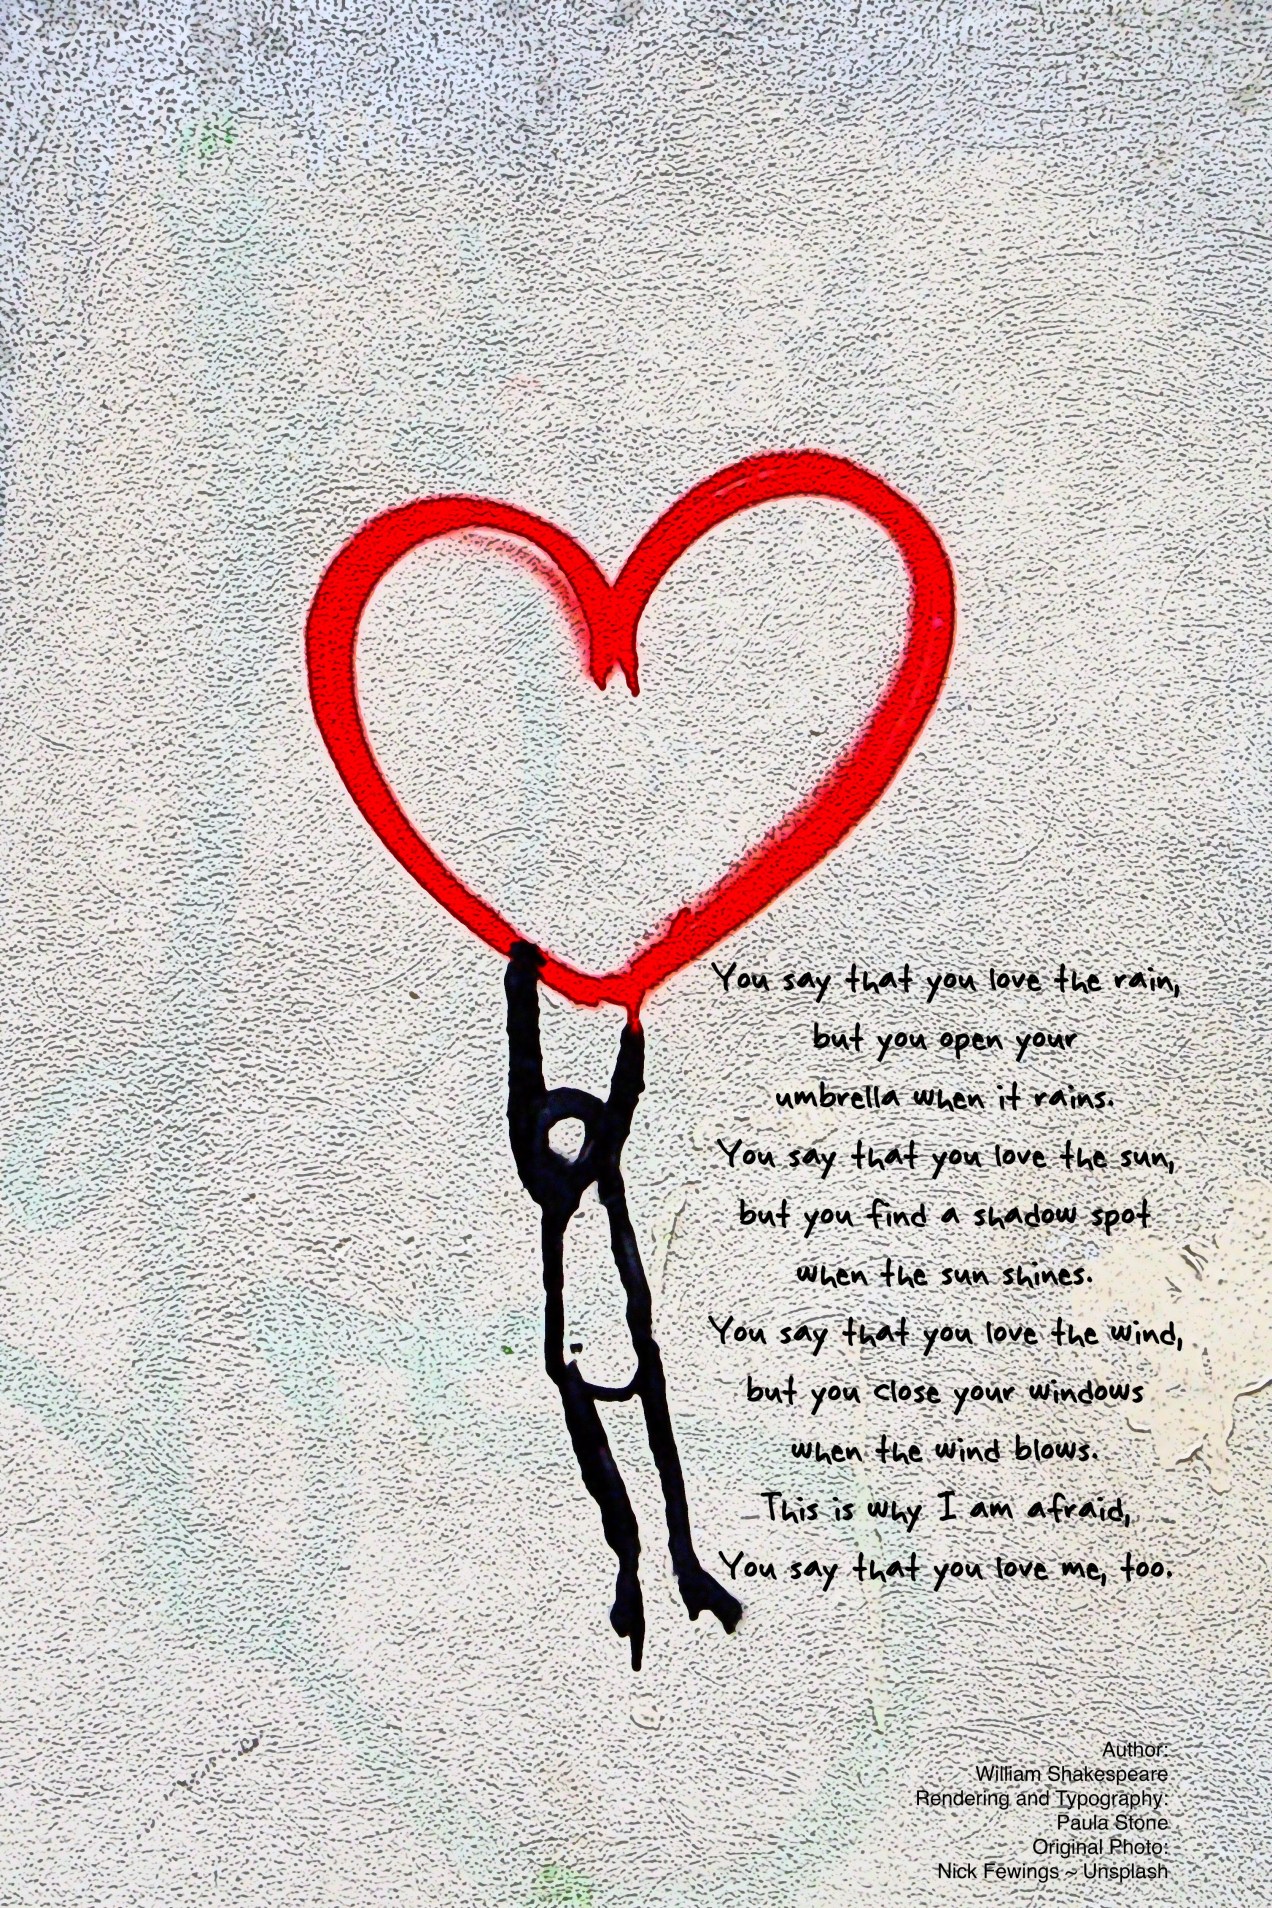 You say that you love the rain,
but you open your
umbrella when it rains.
You say that you love the sun,
but you find a shadow spot
when the sun shines.
You say that you love the wind,
but you close your windows
when the wind blows.
This is why I am afraid,
You say that you love me, too.
Author:
William Shakespeare
Rendering and Typography:
Paula Stone
Original Photo:
Nick Fewings ~ Unsplash